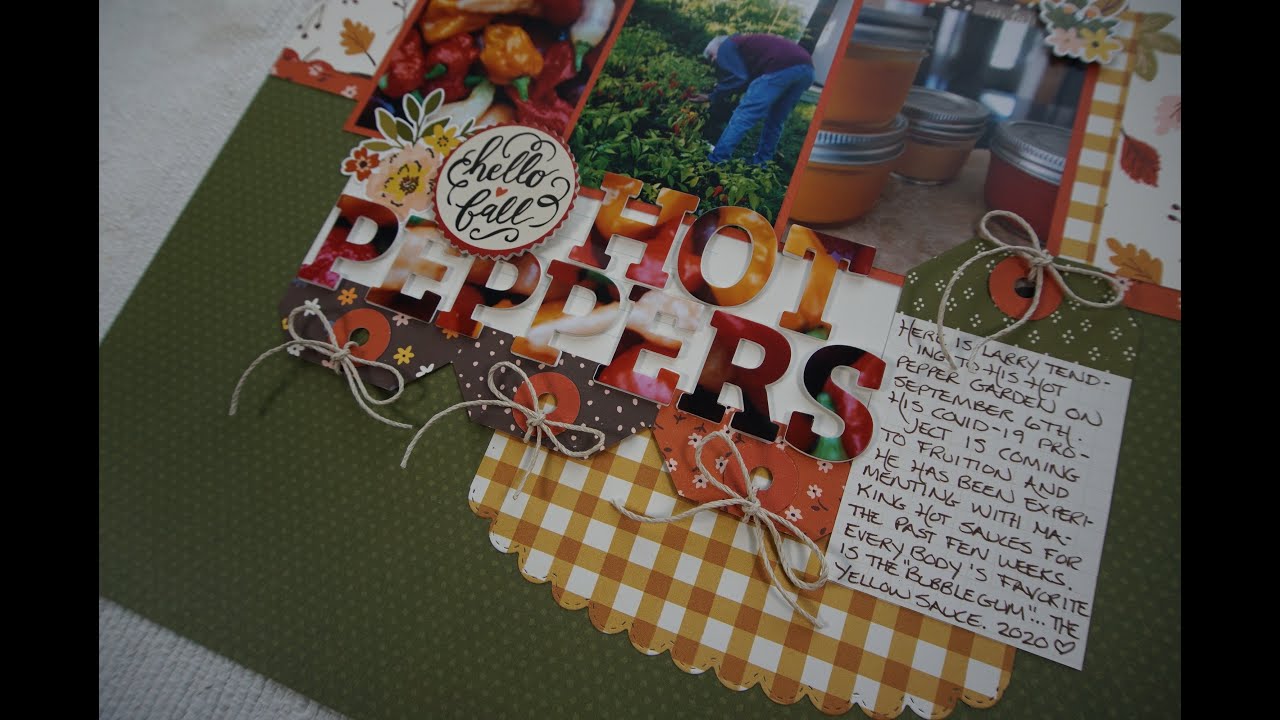 hello
fall
HOT
PEPPERS
HERE IS LARRY TEND-
ING TO HIS HOT
PEPPER GARDEN ON
SEPTEMBER 6TH.
HIS COVID-19 PRO-
JECT IS COMING
TO FRUITION AND
HE HAS BEEN EXPERI-
MENTING WITH MA-
KING HOT SAUCES FOR
THE PAST FEW WEEKS.
EVERYBODY'S FAVORITE
IS THE "BUBBLEGUM"... THE
YELLOW SAUCE. 2020 ♡